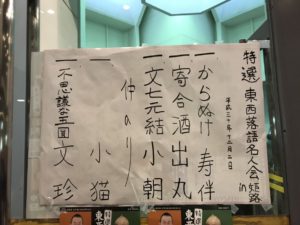 特選 東西落語名人会 in 姫路
平成三十年十二月二日
一 からぬけ 寿伴
一 寄合酒 出丸
一 文七元結 小朝
仲のり
一 小猫
一 不思議な五圓 文珍